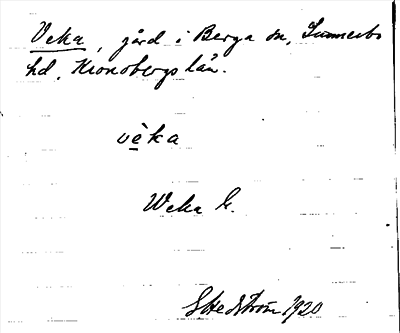 Veka, gård i Berga sn, Sunnerbo
hd, Kronobergs län.
vèka
Weka
1920